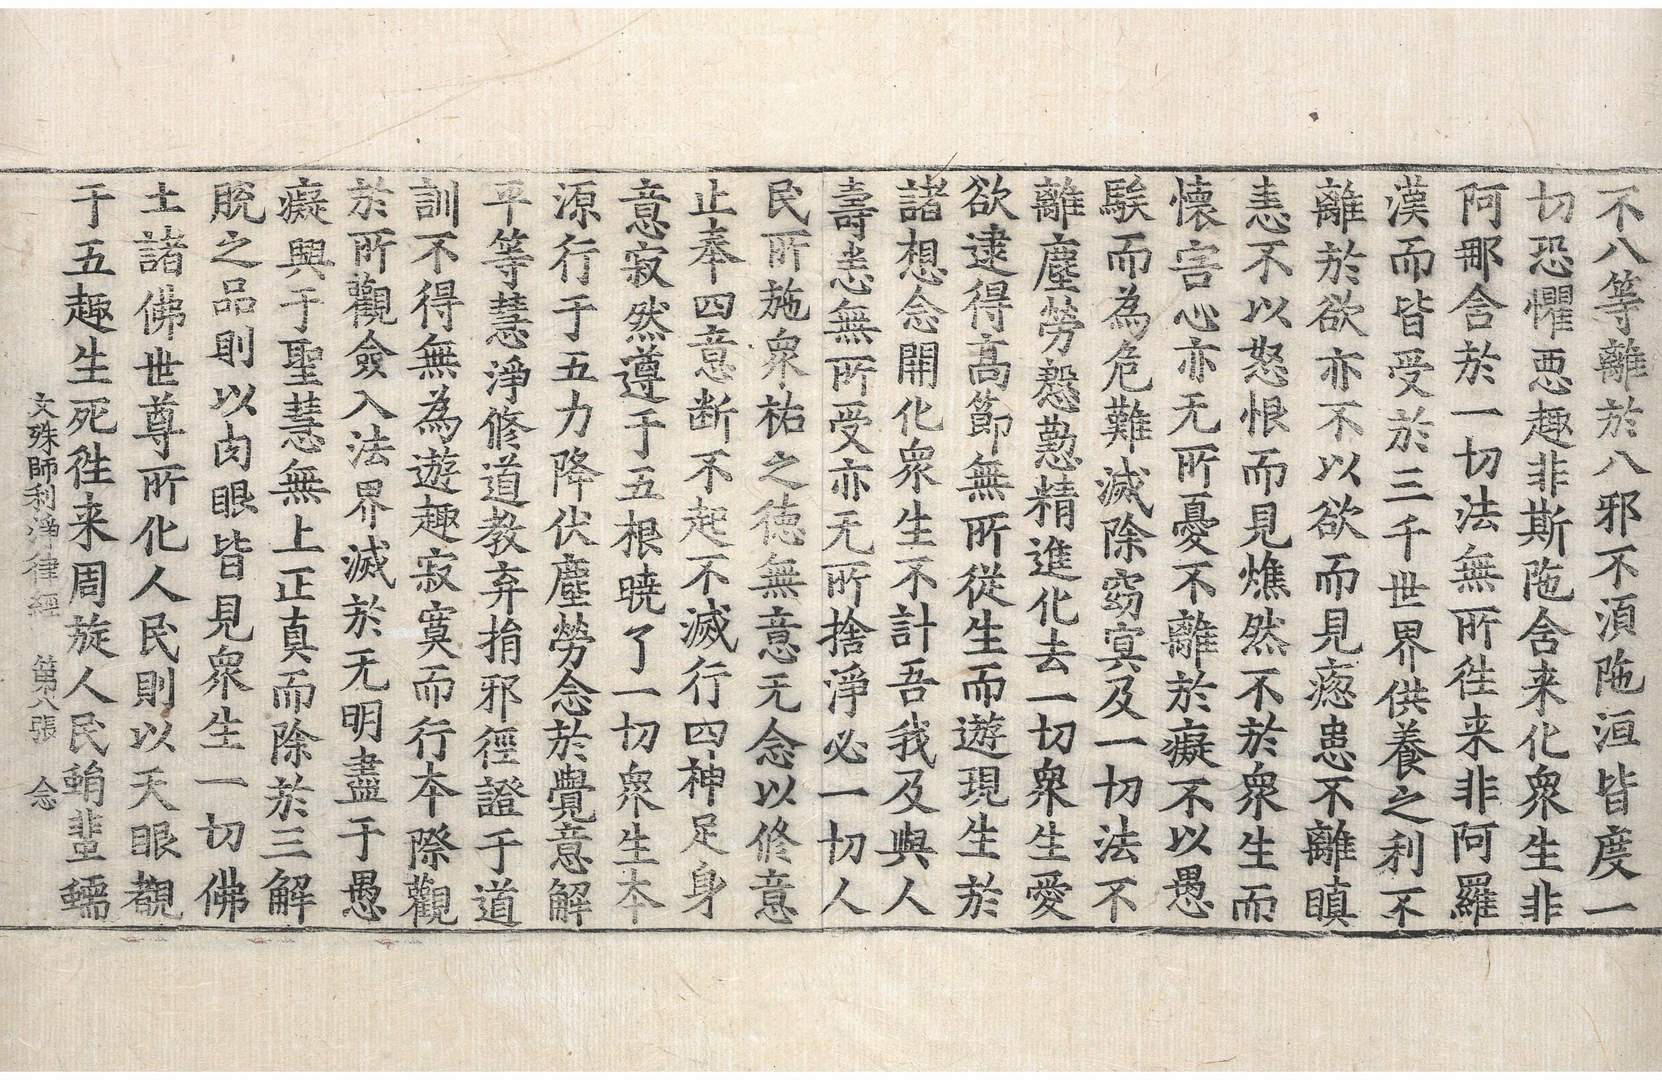 不八等離於八邪不須陁洹皆度一
切恐懼惡趣非斯陁含来化衆生非
阿那含於一切法無所徃来非阿羅
漢而皆受於三千世界供養之利不
離於欲亦不以欲而見㾕患不離瞋
恚不以怒恨而見燋然不於衆生而
懐害心亦无所憂不離於癡不以愚
騃而為危難滅除窈㝠及一切法不
離塵勞慇懃精進化去一切衆生愛
欲逮得高節無所從生而遊現生於
諸想念開化衆生不計吾我及與人
壽恚無所受亦无所捨淨必一切人
民所施衆祐之徳無意无念以修意
止奉四意断不起不滅行四神足身
意寂然遵于五根暁了一切衆生本
源行于五力降伏塵勞念於覺意解
平等慧淨修道教弃捐邪徑證于道
訓不得無為遊趣寂寞而行本際觀
於所觀僉入法界滅於无明盡于愚
癡興于聖慧無上正真而除於三解
脫之品則以肉眼皆見衆生一切佛
土諸佛世尊所化人民則以天眼覩
于五趣生死徃来周旋人民蜎蜚蠕
文殊師利淨律經 第八張 念